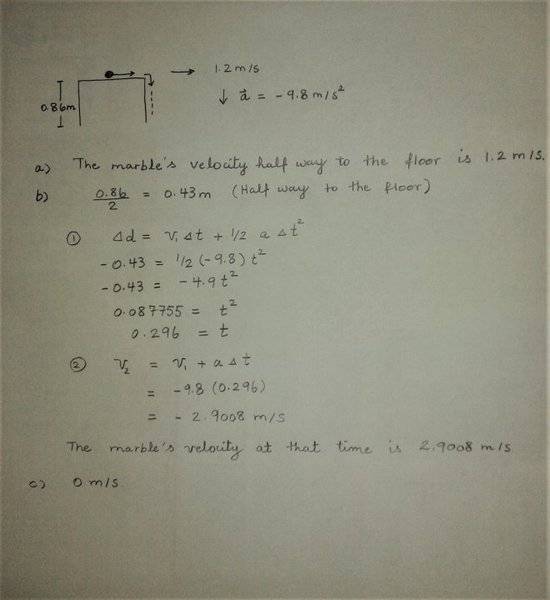 1.2 m/s
0.86m
↓ a⃗ = -9.8 m/s²
a) The marble's velocity half way to the floor is 1.2 m/s.
b) 0.86/2 = 0.43 m (Half way to the floor)
① Δd = V₁Δt + 1/2 a Δt²
-0.43 = 1/2 (-9.8) t²
-0.43 = -4.9t²
0.087755 = t²
0.296 = t
② V₂ = V₁ + a Δt
= -9.8 (0.296)
= - 2.9008 m/s
The marble's velocity at that time is 2.9008 m/s
c) 0 m/s